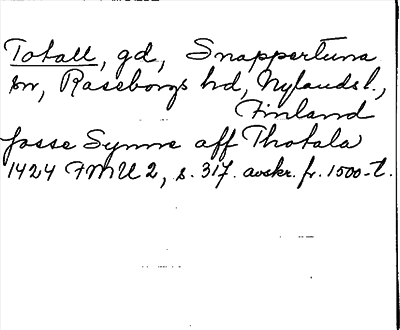 Totall, gd, Snappertuna
sn, Raseborgs hd, Nylands l.,
Finland
Josse Symne aff Thotala
1424 FMU 2, s. 317. avskr. fr. 1500-t.